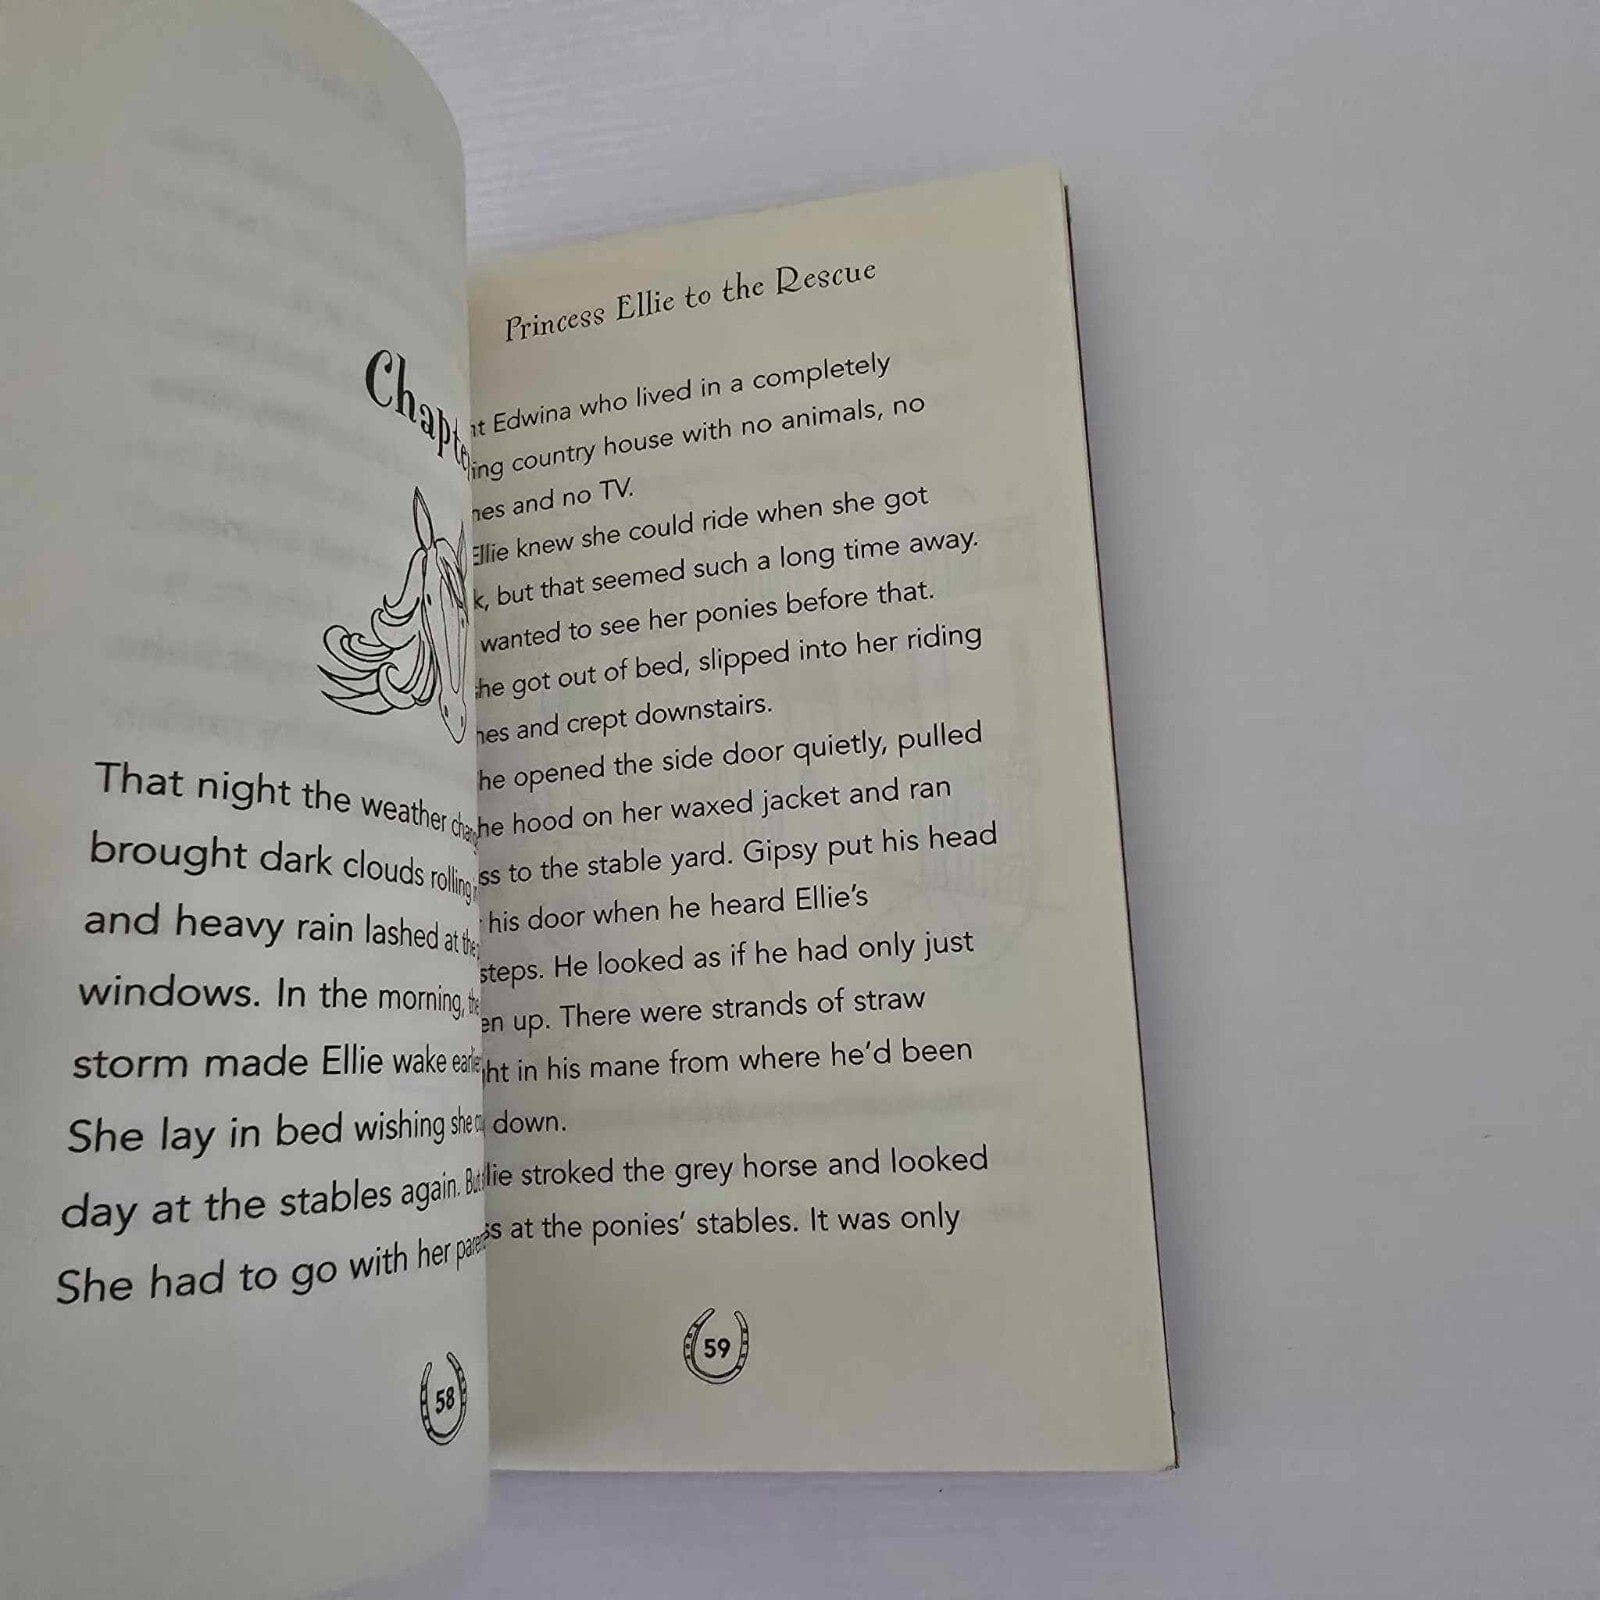 Chapter
That night the weather
brought dark clouds rolling
and heavy rain lashed at the
windows. In the morning, the
storm made Ellie wake
She lay in bed wishing she
day at the stables again. But
She had to go with her
58
Princess Ellie to the Rescue
Edwina who lived in a completely
country house with no animals, no
and no TV.
Ellie knew she could ride when she got
but that seemed such a long time away.
wanted to see her ponies before that.
she got out of bed, slipped into her riding
and crept downstairs.
he opened the side door quietly, pulled
he hood on her waxed jacket and ran
ss to the stable yard. Gipsy put his head
his door when he heard Ellie's
steps. He looked as if he had only just
en up. There were strands of straw
ht in his mane from where he'd been
down.
lie stroked the grey horse and looked
ss at the ponies' stables. It was only
59